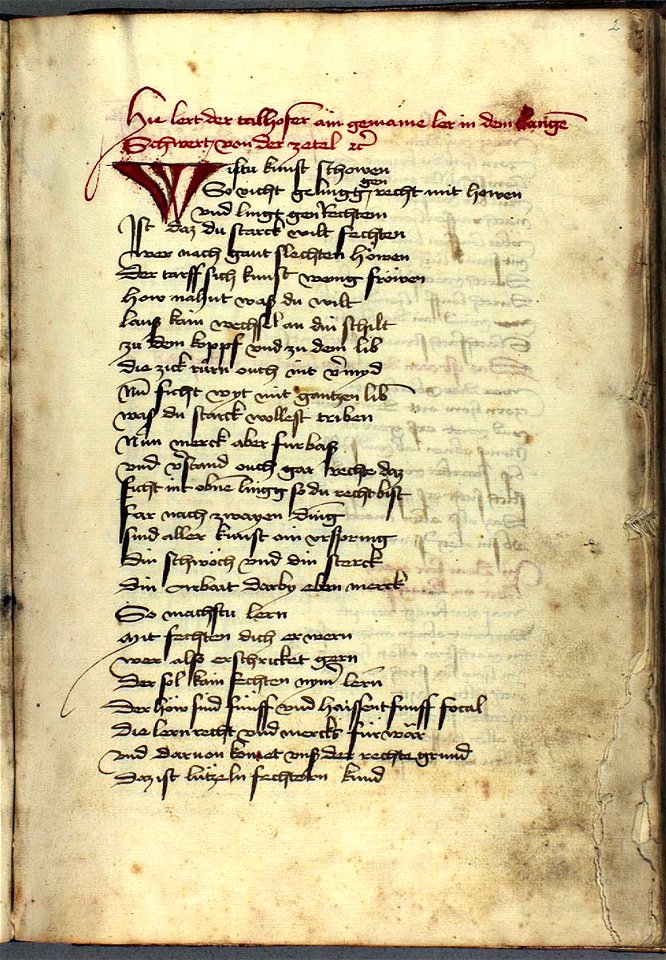 2
Hie lert der talhofer ain gemaine ler in dem langē
Schwert von der zetel zc̄
Wistu kunst schowen
So sicht gelingg gen recht mit howen
vnd lingk gen Rechtem
Ist daz du starck wilt fechten
wer nach gaut slechten höwen
der tarff sich kunst wenig fröwen
how nahnt waß du wilt
lauß kain wechsel an din schilt
zu dem koppf vnd zu dem lib
die zick rürn ouch nit v̄myd
Nū ficht wyt mit gantzen lib
was du starck wollest triben
Nun merck aber furbaß
vnd v̄stand ouch gar rechte daz
ficht nit obnē lingg so du recht bist
far nach zwayen ding
sind aller kunst ain vrspring
din schwöch vnd din sterck
din Arbait darby eben merck
So machstu lern
mit fechten dich erwern
wer also erschricket gern
der sol kain fechten nym̄ lern
der höw sind fünff vnd haissent funff focal
die lern recht vnd mercks für wār
vnd daruon komet vnß der rechte grund
daz ist lützeln fechtern kund